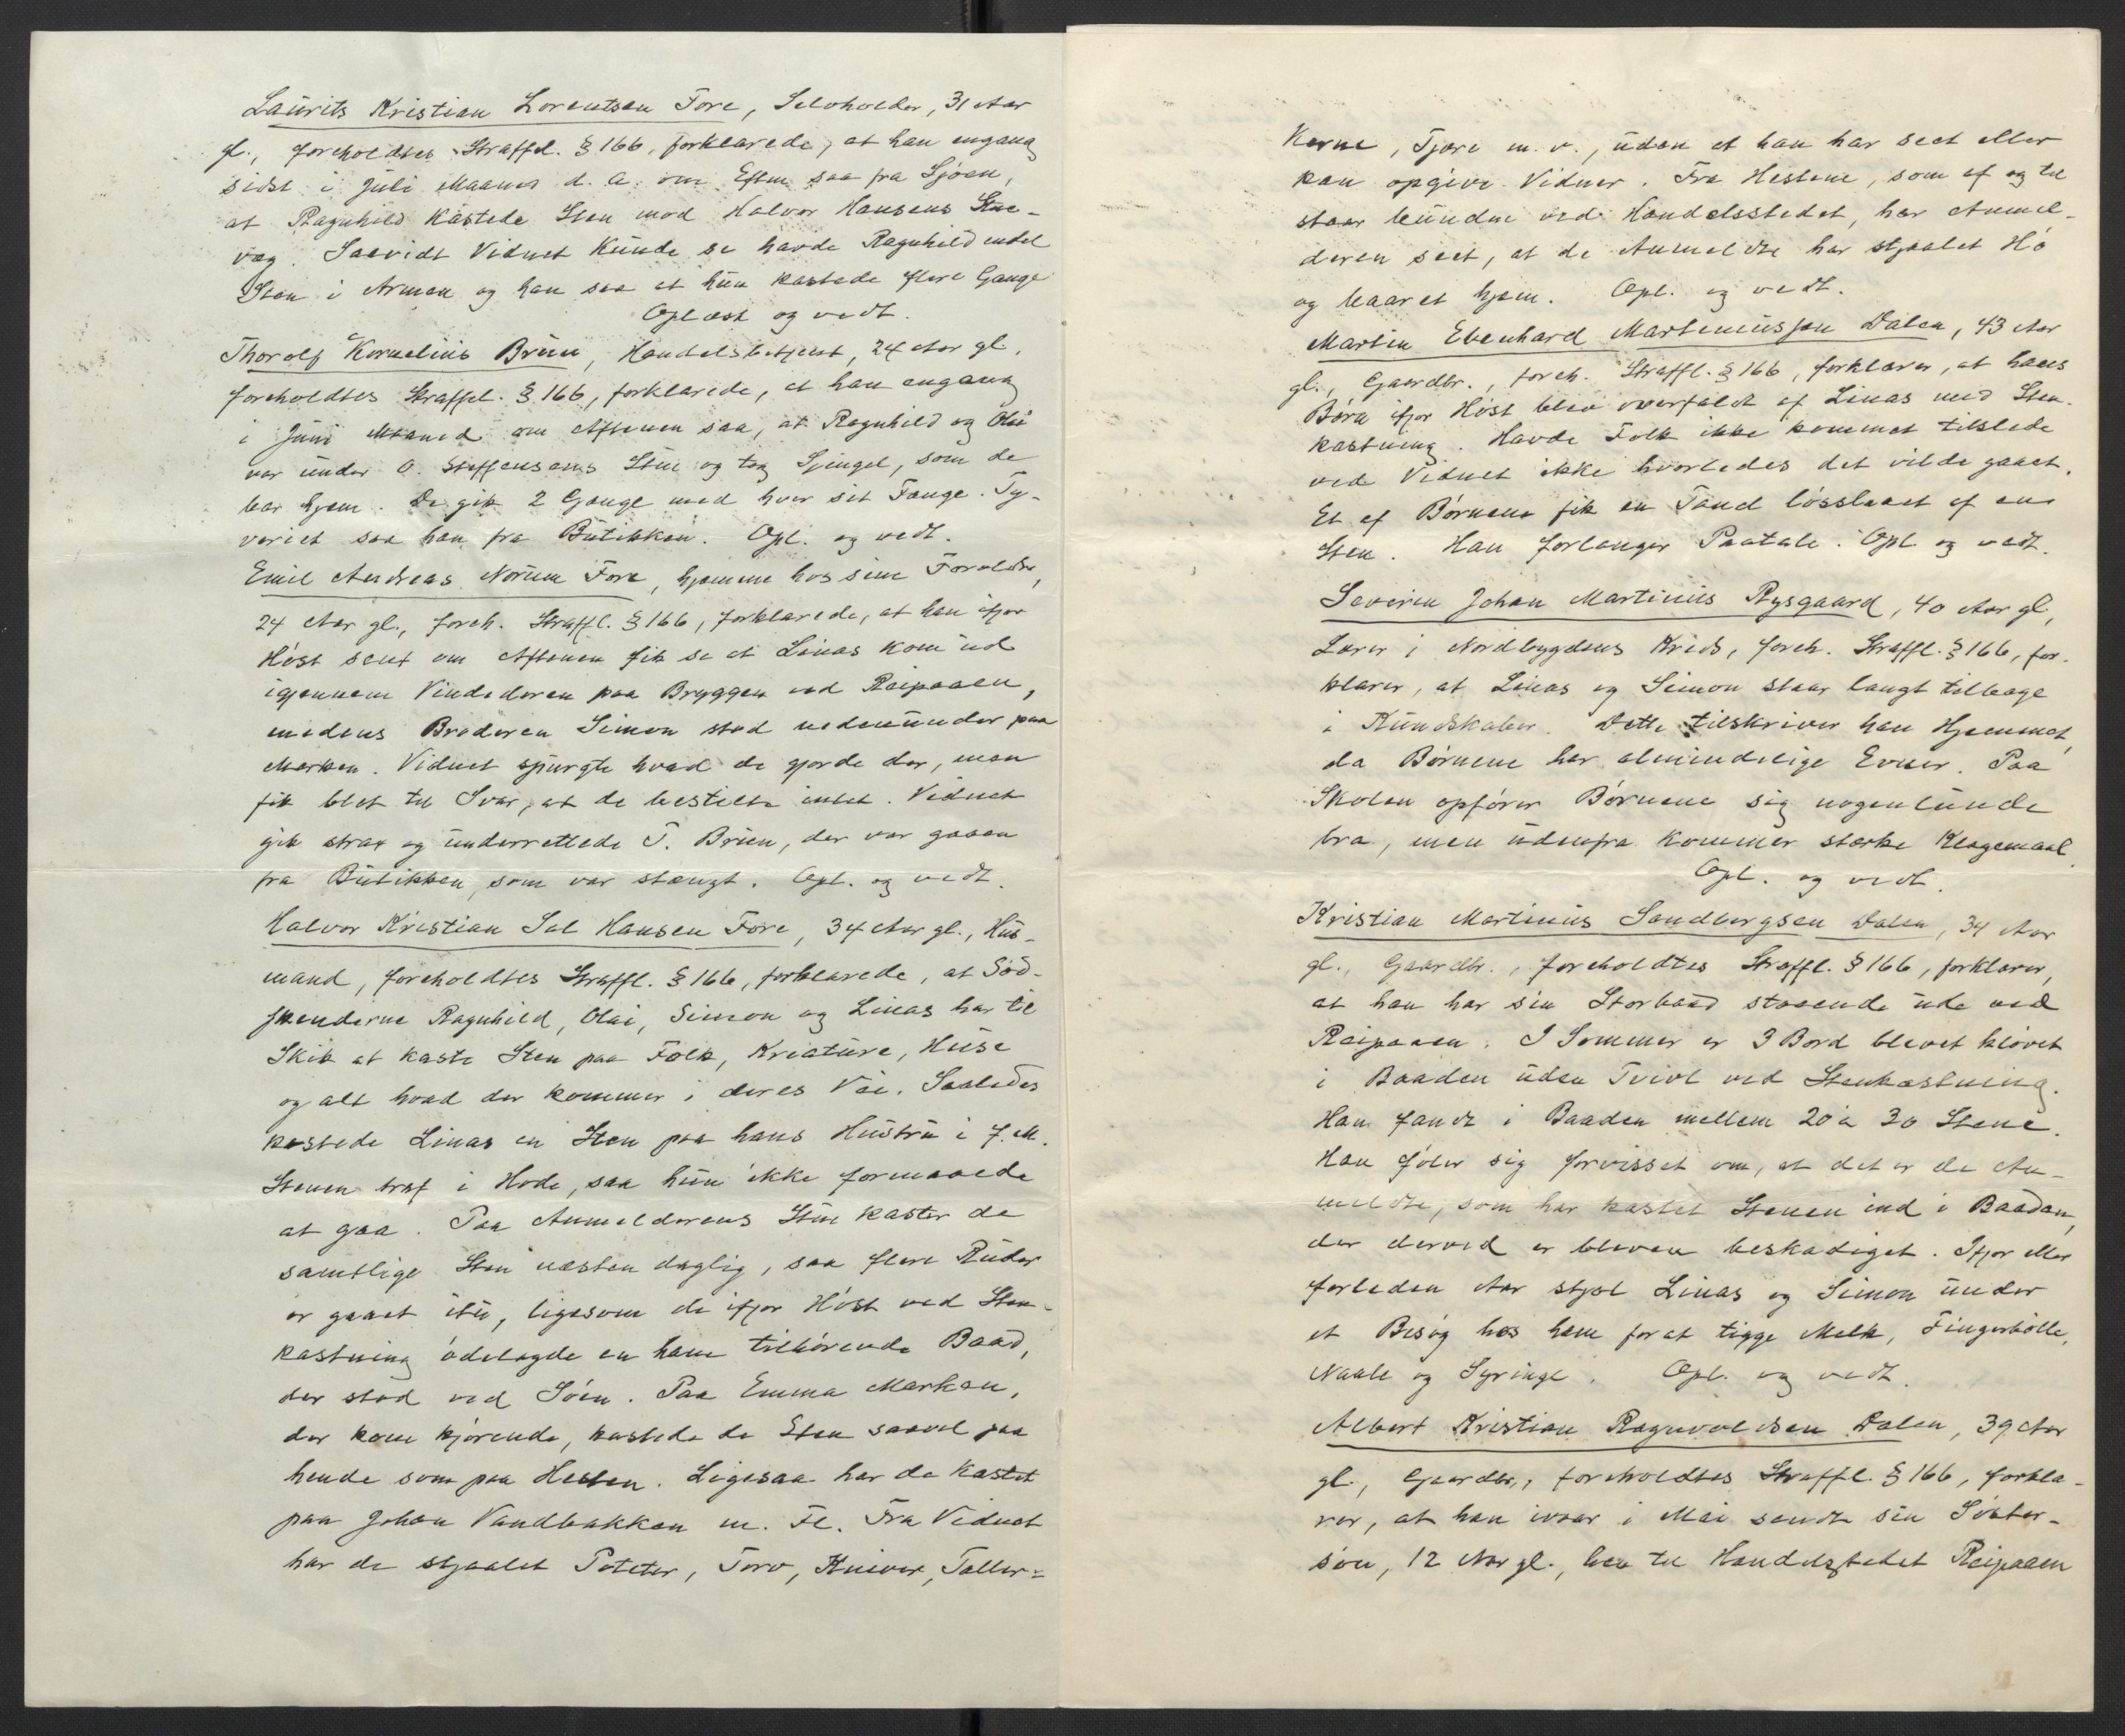 Laurits Kristian Lorentsen Fore, Selvholder, 31 Aar
gl., foreholdtes Straffel. § 166, forklarede, at han engang
sidst i Juli Maaned d. A. om Eftm saa fra Sjøen,
at Ragnhild kastede Sten mod Halvor Hansens Stue-
væg. Saavidt Vidnet kunde se havde Ragnhild endel
Sten i Armen og han saa at hun kastede flere Gange
Oplæst og vedt.
Thorolf Kornelius Bruun, Handelsbetjent, 24 Aar gl.
foreholdtes Straffel. § 166, forklarede, at han engang
i Juni Maaned om Aftenen saa, at Ragnhild og Olai
var under O. Steffensens Stue og tog Spingel, som de
bar hjem. De gik 2 Gange med hver sit Fange. Ty-
veriet saa han fra Butikken. Opl. og vedt.
Emil Andreas Norum Fore, hjemme hos sine Forældre,
24 Aar gl., foreh. Straffl. § 166, forklarede, at han ifjor
Høst sent om Aftenen fik se at Linas kom ud
igjennem Vindedøren paa Bryggen ved Reipaaen,
medens Broderen Simon stod nedenunder paa
Marken. Vidnet spurgte hvad de gjorde der, men
fik blot til Svar, at de bestilte intet. Vidnet
gik strax og underrettede T. Bruun, der var gaaen
fra Butikken, som var stængt. Opl. og vedt.
Halvor Kristian Sal Hansen Fore, 34 Aar gl., Hus-
mand, foreholdtes Straffl. § 166, forklarede, at Sød-
skenderne Ragnhild, Olai, Simon og Linas har til
Skik at kaste Sten paa Folk, Kriature, Huse
og alt hvad der kommer i deres Vei. Saaledes
kastede Linas en Sten paa hans Hustru i f. M.
Stenen traf i Hode, saa hun ikke formaaede
at gaa. Paa Anmelderens Stue kaster de
samtlige Sten næsten daglig, saa flere Ruder
er gaaet itu, ligesom de ifjor Høst ved Sten-
kastning ødelagde en ham tilhørende Baad,
der stod ved Søen. Paa Emma Marken,
der kom kjørende, kastede de Sten saavel paa
hende som paa Hesten. Ligesaa har de kastet
paa Johan Vandbakken m. Fl. Fra Vidnet
har de stjaalet Poteter, Torv, Kniver, Taller=
Kerne, Tjære m. v., uden at han har seet eller
kan opgive Vidner. Fra Hestene, som af og til
staar bundne ved Handelsstedet, har Anmel-
deren seet, at de Anmeldte har stjaalet Hø
og baaret hjem. Opl. og vedt.
Martin Ebenhard Marteniussen Dalen, 43 Aar
gl., Gaardbr., foreh. Straffl. § 166, forklarer, at hans
Børn ifjor Høst blev overfaldt af Linas med Sten-
kastning. Havde Folk ikke kommet tilstede
ved Vidnet ikke hvorledes det vilde gaaet.
Et af Børnene fik en Tand løsslaaet af en
Sten. Han forlanger Paatale. Opl og vedt.
Severin Johan Martinus Rysgaard, 40 Aar gl,
Lærer i Nordbygdens Kreds, foreh. Straffl. § 166, for-
klarer, at Linas og Simon staar langt tilbage
i Kundskaber. Dette tilskriver han Hjemmet,
da Børnene har almindelige Evner. Paa
Skolen opfører Børnene sig nogenlunde
bra, men udenfra kommer stærke Klagemaal
Opl. og vedt.
Kristian Martinus Sandbergsen Dalen, 34 Aar
gl., Gaardbr., foreholdtes Straffl. § 166, forklarer,
at han har sin Storbaad staaende ude ved
Reipaaen. I Sommer er 3 Bord blevet kløvet
i Baaden uden Tvivl ved Stenkastning.
Han fandt i Baaden mellem 20 a 30 Stene.
Han føler sig forvisset om, at det er de An-
meldte, som har kastet Stenen ind i Baaden,
der derved er bleven beskadiget. Ifjor eller
forleden Aar stjal Linas og Simon under
et Besøg hos ham for at tigge Melk, Fingerbølle,
Naale og Syringe. Opl. og vedt.
Albert Kristian Ragnvaldsen Dalen, 39 Aar
gl., Gaardbr., foreholdtes Straffl. § 166, forkla-
rer, at han ivaar i Mai sendte sin Søster-
søn, 12 Aar gl., hen til Handelsstedet Reipaaen